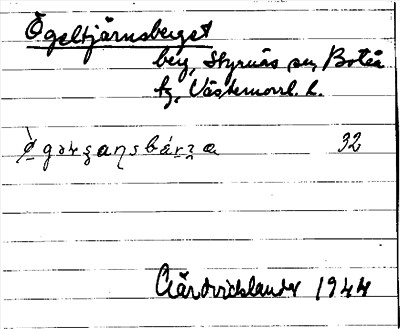 Ögeltjärnsberget
berg, Styrnäs sn, Boteå
tg, Västernorrl. l.
32
Gärdvicklander 1944